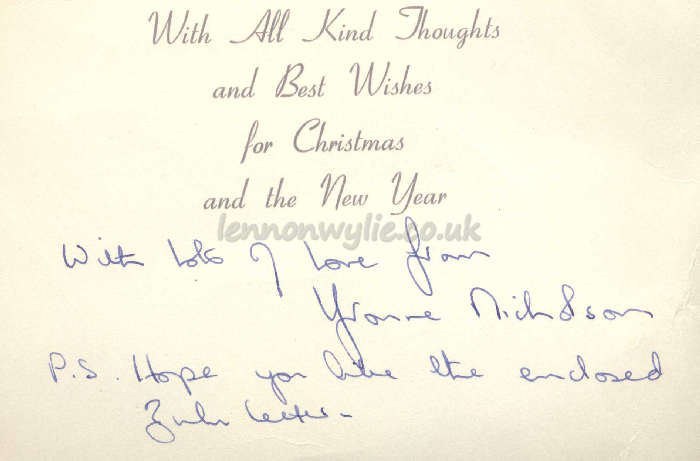 With All Kind Thoughts
and Best Wishes
for Christmas
and the New Year
lennonwylie.co.uk
With lots of love from
Yvonne Nicholson
P.S. Hope you like the enclosed
Zulu letter -